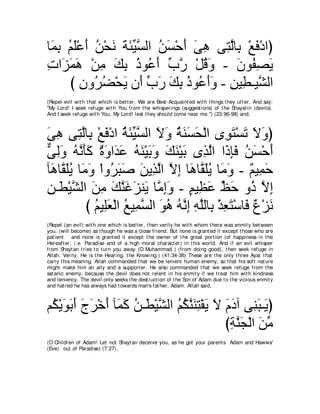 ﺎَﻤِﺑ ُﻢَﻠْﻋَﺃ ُﻦْﺤَﻧ َﺔَﺌﱢﻴﱠﺴﻟﺍ ُﻦَﺴْﺣَﺃ َﻰِﻫ ﻰِﺘﱠﻟﺎِﺑ ْﻊَﻓْﺩﺍ)
ِﺕﺍَﺰَﻤَﻫ ْﻦِﻣ َﻚِﺑ ُﺫﻮُﻋَﺃ ﱢﺏﱠﺭ ْﻞُﻗَﻭ - َﻥﻮُﻔِﺼَﻳ
( ِﻥﻭُﺮُﻀْﺤَﻳ ﻥَﺃ ﱢﺏَﺭ َﻚِﺑ ُﺫﻮُﻋَﺃَﻭ - ِﻦﻴِـﻄـَﻴﱠﺸﻟﺍ
(Repel evil with that which is better. We are Best-Acquainted with things they utter. And say: "My Lord! I seek refuge with You from the whisperings (suggestions) of the Shayatin (devils). And I seek refuge with You, My Lord! lest they should come near me.'') (23:96-98) and,
َﻰِﻫ ﻰِﺘﱠﻟﺎِﺑ ْﻊَﻓْﺩﺍ ُﺔَﺌﱢﻴﱠﺴﻟﺍ َﻻَﻭ ُﺔَﻨَﺴَﺤْﻟﺍ ﻯِﻮَﺘْﺴَﺗ َﻻَﻭ)
ﱞﻰِﻟَﻭ ُﻪﱠﻧَﺄَﻛ ٌﺓَﻭﺍَﺪَﻋ ُﻪَﻨْﻴَﺑَﻭ َﻚَﻨْﻴَﺑ ﻯِﺬﱠﻟﺍ ﺍَﺫِﺈَﻓ ُﻦَﺴْﺣَﺃ
ﺂَﻫﺎﱠﻘَﻠُﻳ ﺎَﻣَﻭ ْﺍﻭُﺮَﺒَﺻ َﻦﻳِﺬﱠﻟﺍ ﱠﻻِﺇ ﺎَﻫﺎﱠﻘَﻠُﻳ ﺎَﻣَﻭ - ٌﻢﻴِﻤَﺣ
ِﻦـَﻄْﻴﱠﺸﻟﺍ َﻦِﻣ َﻚﱠﻨَﻏَﺰﻨَﻳ ﺎﱠﻣِﺇَﻭ - ٍﻢﻴِﻈَﻋ ﱟﻆَﺣ ﻭُﺫ ﱠﻻِﺇ
( ُﻢﻴِﻠَﻌْﻟﺍ ُﻊﻴِﻤﱠﺴﻟﺍ َﻮُﻫ ُﻪﱠﻧِﺇ ِﻪﱠﻠﻟﺎِﺑ ْﺬِﻌَﺘْﺳﺎَﻓ ٌﻍْﺰَﻧ
(Repel (an evil) with one which is better, then verily he with whom there was enmity between you, (will become) as though he was a close friend. But none is granted it except those who are patient and none is granted it except the owner of the great portion (of happiness in the Hereafter, i.e. Paradise and of a high moral character) in this world. And if an evil whisper from Shaytan tries to turn you away (O Muhammad ) (from doing good), then seek refuge in Allah. Verily, He is the Hearing, the Knowing.) (41:34-36) These are the only three Ayat that carry this meaning. Allah commanded that we be lenient human enemy, so that his soft nature might make him an ally and a supporter. He also commanded that we seek refuge from the satanic enemy, because the devil does not relent in his enmity if we treat him with kindness and leniency. The devil only seeks the destruction of the Son of Adam due to the vicious enmity and hatred he has always had towards man's father, Adam. Allah said,
ْﻢُﻜْﻳَﻮَﺑَﺃ َﺝَﺮْﺧَﺃ ﺂَﻤَﻛ ُﻦـَﻄْﻴﱠﺸﻟﺍ ُﻢُﻜﱠﻨَﻨِﺘْﻔَﻳ َﻻ َﻡَﺩﺍَﺀ ﻰِﻨَﺒـَﻳ)
(ِﺔﱠﻨَﺠْﻟﺍ َﻦﱢﻣ
(O Children of Adam! Let not Shaytan deceive you, as he got your parents Adam and Hawwa' (Eve) out of Paradise) (7:27),